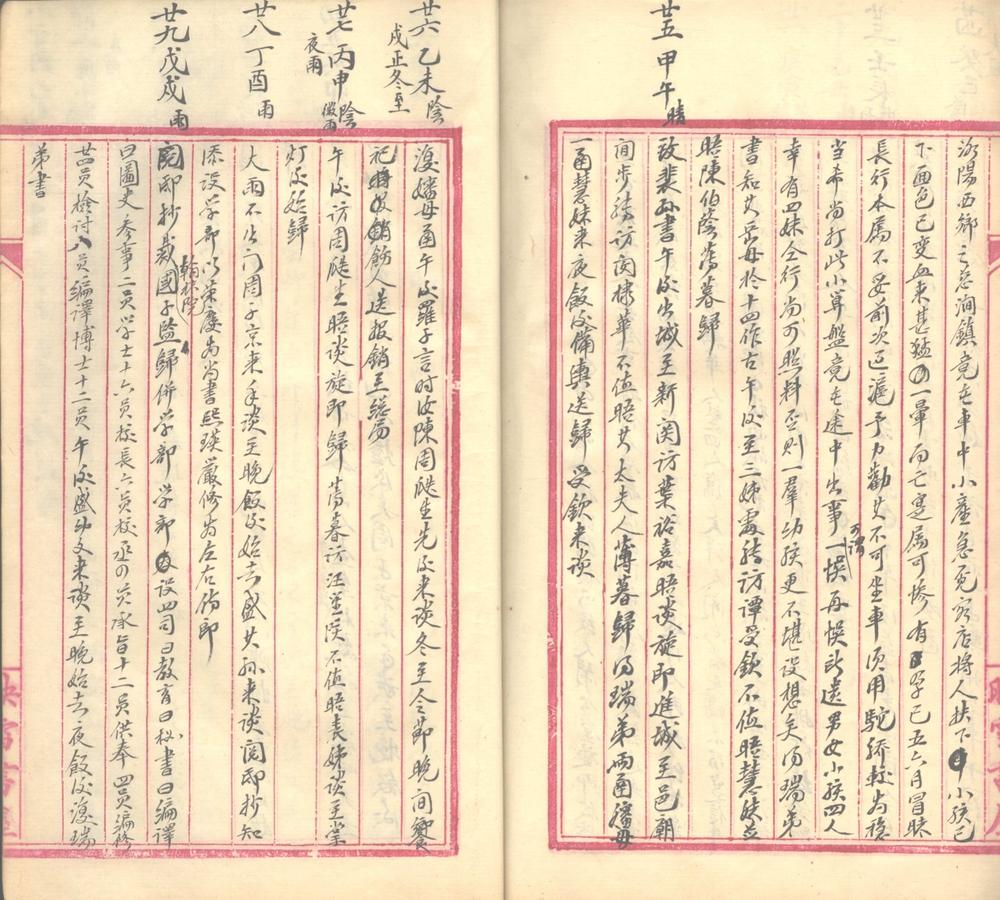 汾陽西鄉之忽澗鎮竟在車中小產急覓客店將人扶下車小孩已
下面色已變血來甚猛一暈而亡寔屬可慘有孕已五六月冒昧
長行本屬不妥前次過滬予力勸其不可坐車須用駝轎較為穩
當希尚打此小算盤竟在途中出事可謂一悞再悞所遺男女小孩四人
幸有四妹仝行尚可照料否則一羣幼孩更不堪設想矣得瑞弟
書知其岳母於十四作古午後至三姊處轉訪譚受欽不值晤慧妹並
晤陳伯蔭薄暮歸
廿五甲午晴
致裴孫書午後出城至新関訪葉裕嘉晤談旋即進城至邑廟
間步轉訪閔棣華不值晤其太夫人薄暮歸得瑞弟兩函嬸母
一函慧妹來夜飯後備輿送歸受欽來談
廿六乙未陰
戌正冬至
復嬸母函午後羅子言時汝陳周颺生先後來談冬至令節晚間饗
祀飭人送報銷至總局
廿七丙申陰微雨
夜雨
午後訪周颺生晤談旋即歸薄暮訪汪笙侯不值晤表姊談至掌
灯後始歸
廿八丁酉雨
大雨不出門周子京來手談至晚飯後始去盛其孫來談閱邸抄知
添設學部以榮慶為尚書熙瑛嚴修為左右侍郎
廿九戊戌雨
閱邸抄裁國子監歸併學部學部設四司曰教育曰秘書曰編譯
翰林院
曰圖文參事二員學士十六員校長六員校丞四員承旨十二員供奉四員編修
廿四員檢討八員編譯博士十二員午後盛幼文來談至晚始去夜飯後復瑞
弟書